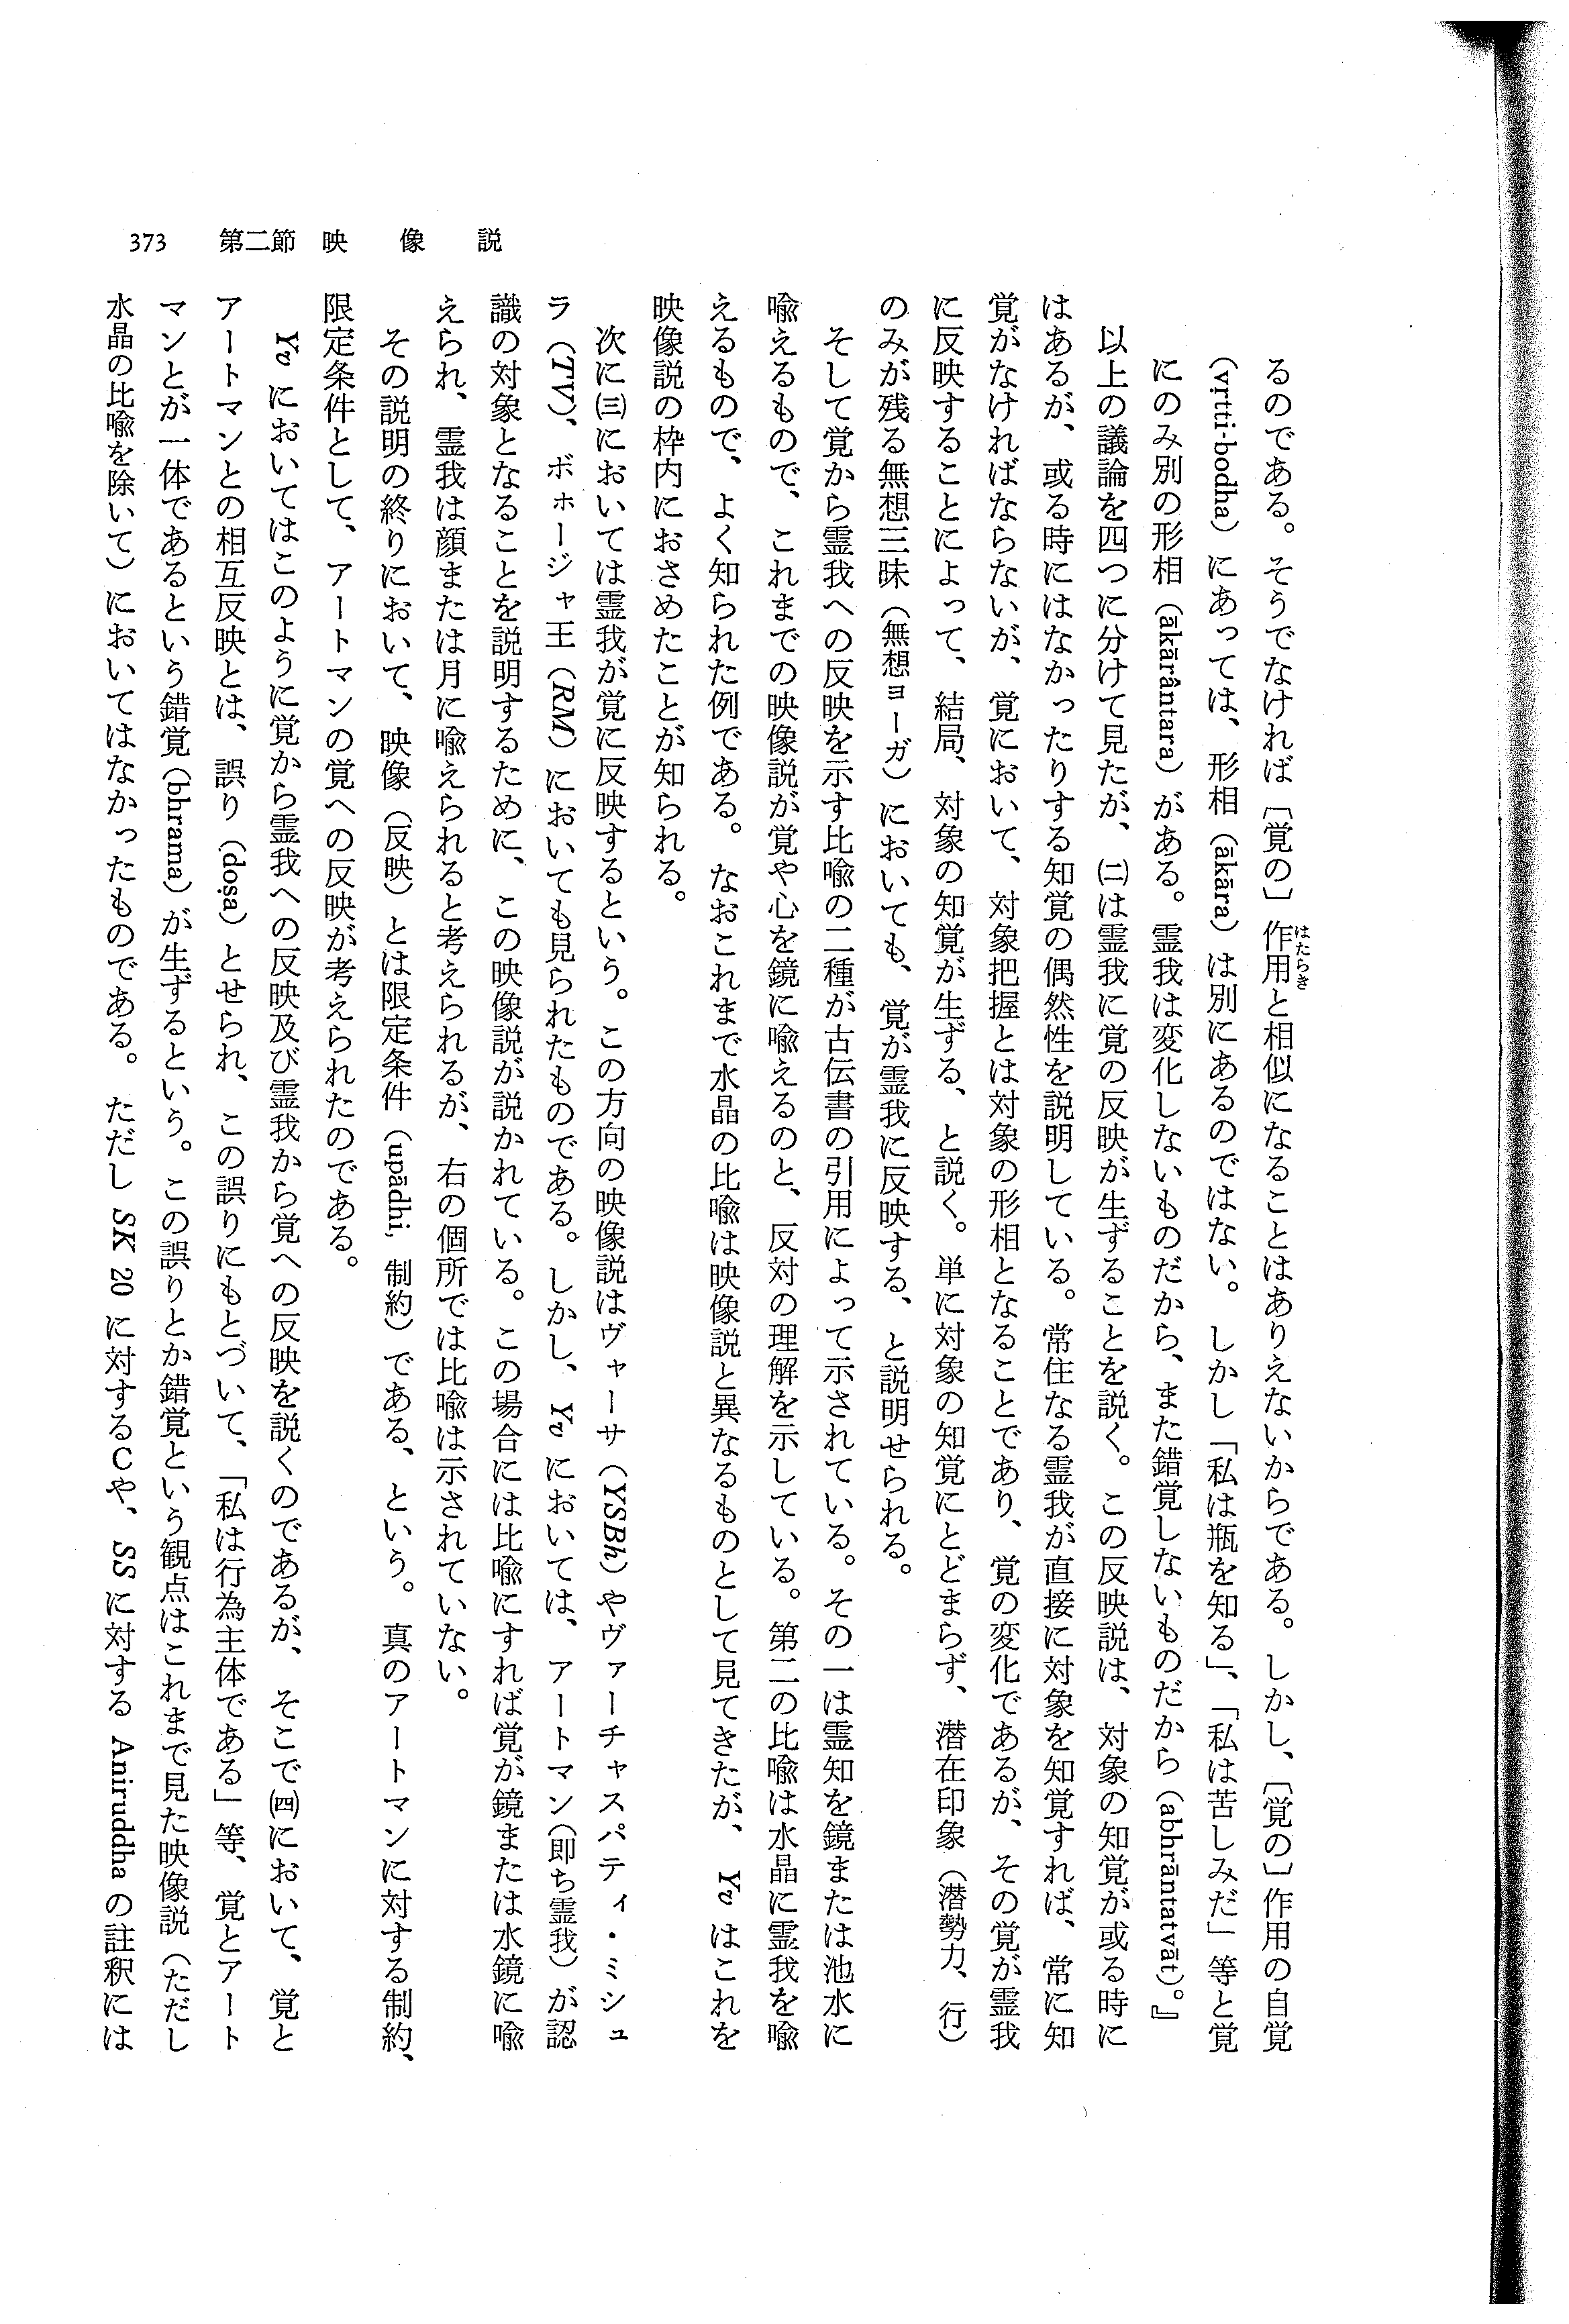 373　第二節　映　像　説
るのである。そうでなければ〔覚の〕作用と相似になることはありえないからである。しかし、〔覚の〕作用の自覚
はたらき
（vṛtti-bodha）にあっては、形相（ākāra）は別にあるのではない。しかし「私は瓶を知る」、「私は苦しみだ」等と覚
にのみ別の形相（ākārântara）がある。霊我は変化しないものだから、また錯覚しないものだから（abhrāntatvāt）。』
以上の議論を四つに分けて見たが、㈡は霊我に覚の反映が生ずることを説く。この反映説は、対象の知覚が或る時に
はあるが、或る時にはなかったりする知覚の偶然性を説明している。常住なる霊我が直接に対象を知覚すれば、常に知
覚がなければならないが、覚において、対象把握とは対象の形相となることであり、覚の変化であるが、その覚が霊我
に反映することによって、結局、対象の知覚が生ずる、と説く。単に対象の知覚にとどまらず、潜在印象（潜勢力、行）
のみが残る無想三昧（無想ヨーガ）においても、覚が霊我に反映する、と説明せられる。
そして覚から霊我への反映を示す比喩の二種が古伝書の引用によって示されている。その一は霊知を鏡または池水に
喩えるもので、これまでの映像説が覚や心を鏡に喩えるのと、反対の理解を示している。第二の比喩は水晶に霊我を喩
えるもので、よく知られた例である。なおこれまで水晶の比喩は映像説と異なるものとして見てきたが、Yv はこれを
映像説の枠内におさめたことが知られる。
次に㈢においては霊我が覚に反映するという。この方向の映像説はヴャーサ（YSBh）やヴァーチャスパティ・ミシュ
ラ（TV）、ボホージャ王（RM）においても見られたものである。しかし、Yv においては、アートマン（即ち霊我）が認
識の対象となることを説明するために、この映像説が説かれている。この場合には比喩にすれば覚が鏡または水鏡に喩
えられ、霊我は顔または月に喩えられると考えられるが、右の個所では比喩は示されていない。
その説明の終りにおいて、映像（反映）とは限定条件（upādhi, 制約）である、という。真のアートマンに対する制約、
限定条件として、アートマンの覚への反映が考えられたのである。
Yv においてはこのように覚から霊我への反映及び霊我から覚への反映を説くのであるが、そこで㈣において、覚と
アートマンとの相互反映とは、誤り（doṣa）とせられ、この誤りにもとづいて、「私は行為主体である」等、覚とアート
マンとが一体であるという錯覚（bhrama）が生ずるという。この誤りとか錯覚という観点はこれまで見た映像説（ただし
水晶の比喩を除いて）においてはなかったものである。ただし SK 20 に対するCや、SS に対する Aniruddha の註釈には